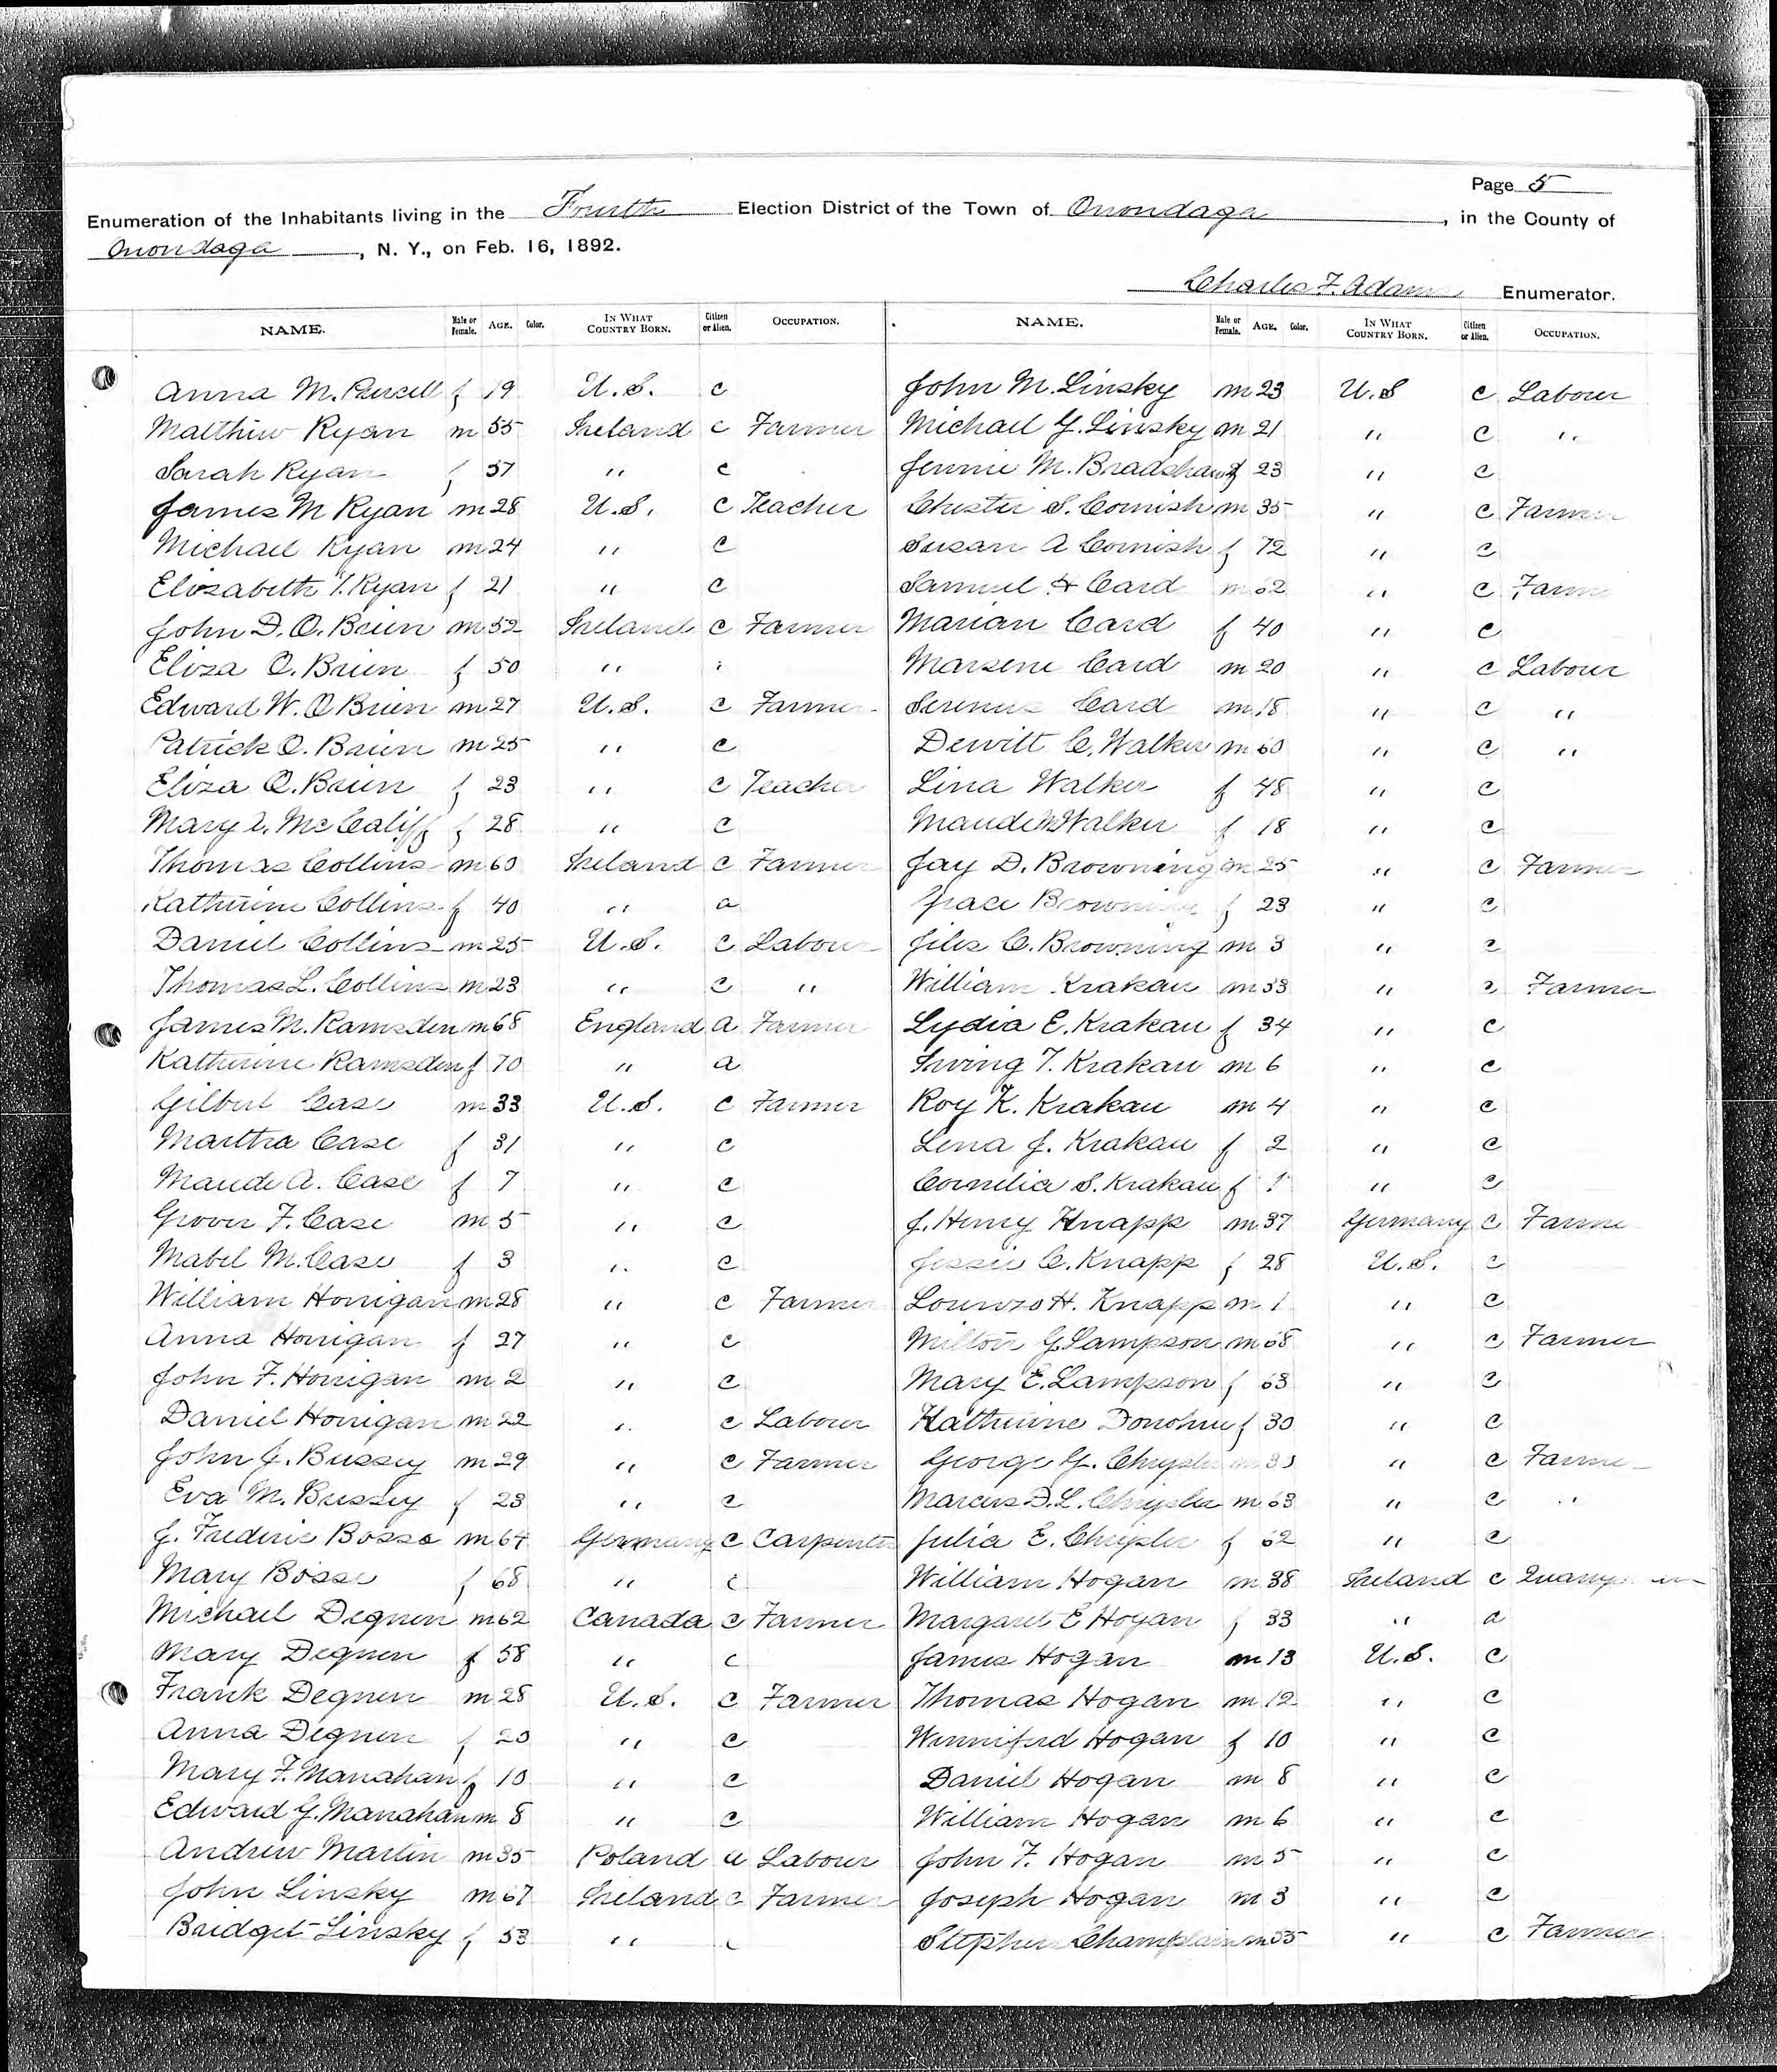 Page 5
Enumeration of the Inhabitants living in the Fourth Election District of the Town of Onondaga, in the County of
Onondaga, N. Y., on Feb. 16, 1892.
Charles F. Adams Enumerator.
NAME. Male or Female. AGE. Color. IN WHAT COUNTRY BORN. Citizen or Alien. OCCUPATION.
Anna M. Purcell f 19 U.S. c
Matthew Ryan m 55 Ireland c Farmer
Sarah Ryan f 57 " c
James M Ryan m 28 U.S. c Teacher
Michael Ryan m 24 " c
Elizabeth T. Ryan f 21 " c
John D. O. Brien m 52 Ireland c Farmer
Eliza O. Brien f 50 "
Edward W. O Brien m 27 U.S. c Farmer
Patrick O. Brien m 25 " c
Eliza O. Brien f 23 " c Teacher
Mary A. McCaliff f 28 " c
Thomas Collins m 60 Ireland c Farmer
Katherine Collins f 40 " a
Daniel Collins m 25 U.S. c Labour
Thomas L. Collins m 23 " c "
James M. Ramsden m 68 England a Farmer
Katherine Ramsden f 70 " a
Gilbert Case m 33 U.S. c Farmer
Martha Case f 31 " c
Maude A. Case f 7 " c
Grover F. Case m 5 " c
Mabel M. Case f 3 " c
William Horrigan m 28 " c Farmer
Anna Horrigan f 27 " c
John F. Horrigan m 2 " c
Daniel Horrigan m 22 " c Labour
John J. Bussey m 29 " c Farmer
Eva M. Bussey f 23 " c
J. Frederic Bosse m 64 Germany c Carpenter
Mary Bosse f 68 " c
Michael Degnen m 62 Canada c Farmer
Mary Degnen f 58 " c
Frank Degnen m 28 U.S. c Farmer
Anna Degnen f 20 " c
Mary F. Manahan f 10 " c
Edward G. Manahan m 8 " c
Andrew Martin m 35 Poland a Labour
John Linsky m 67 Ireland c Farmer
Bridget Linsky f 53 " c
NAME. Male or Female. AGE. Color. IN WHAT COUNTRY BORN. Citizen or Alien. OCCUPATION.
John M. Linsky m 23 U.S c Labour
Michael G. Linsky m 21 " c "
Jennie M. Bradshaw f 23 " c
Chester S. Cornish m 35 " c Farmer
Susan A Cornish f 72 " c
Samuel H Card m 62 " c Farmer
Marian Card f 40 " c
Marsene Card m 20 " c Labour
Serenus Card m 18 " c "
Dewitt C. Walker m 60 " c "
Lina Walker f 48 " c
Maude Walker f 18 " c
Jay D. Browning m 25 " c Farmer
Grace Browning f 23 " c
Jiles C. Browning m 3 " c
William Krakau m 33 " c Farmer
Lydia E. Krakau f 34 " c
Irving T. Krakau m 6 " c
Roy K. Krakau m 4 " c
Lena J. Krakau f 2 " c
Cornelia S. Krakau f 1 " c
J. Henry Knapp m 37 Germany c Farmer
Jessie C. Knapp f 28 U.S. c
Lorenzo H. Knapp m 1 " c
Milton G. Lampson m 68 " c Farmer
Mary E. Lampson f 63 " c
Katherine Donohue f 30 " c
George G. Chrysler m " c Farmer
Marcus D. L. Chrysler m 63 " c "
Julia E. Chrysler f 62 " c
William Hogan m 38 Ireland c
Margaret E Hogan f 33 " a
James Hogan m 13 U.S. c
Thomas Hogan m 12 " c
Winniford Hogan f 10 " c
Daniel Hogan m 8 " c
William Hogan m 6 " c
John F. Hogan m 5 " c
Joseph Hogan m 3 " c
Stephen Champlain m 35 " c Farmer